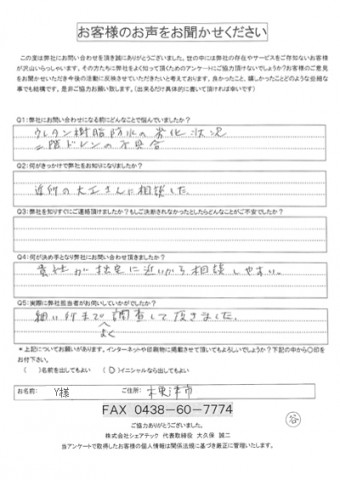 お客様のお声をお聞かせください
この度は弊社にお問い合わせを頂き誠にありがとうございました。世の中には弊社の存在やサービスをご存知ないお客様
が沢山いらっしゃいます。その方たちに弊社をよく知って頂くためのアンケートにご協力頂けないでしょうか?お客様のご意見
をお聞かせいただき今後の活動に反映させていただきたいと考えております。良かったこと、嬉しかったことどのような些細な
事でも結構です。是非ご協力お願い致します。(出来るだけ具体的に書いて頂ければ幸いです)
Q1:弊社にお問い合わせになる前にどんなことで悩んでいましたか?
ウレタン樹脂防水の劣化状況
二階ドレンの不具合
Q2:何がきっかけで弊社をお知りになりましたか?
近所の大工さんに相談した。
Q3:弊社を知りすぐにご連絡頂けましたか?もしご決断されなかったとしたらどんなことがご不安でしたか?
Q4:何が決め手となり弊社にお問い合わせ頂きましたか?
貴社が拙宅に近いから相談しやすい。
Q5:実際に弊社担当者がお伺いしていかがでしたか?
細い所までよく調査して頂きました。
*上記についてお願いがあります。インターネットや印刷物に掲載させて頂いてもよろしいでしょうか?下記の中から〇印を
お付下さい。
( )名前を出してもよい ( O )イニシャルなら出してもよい
お名前: Y様 ご住所: 木更津市
FAX 0438-60-7774
ご協力ありがとうございました。
株式会社シェアテック 代表取締役 大久保 誠二
当アンケートで取得したお客様の個人情報は関係法規に基づき厳正に管理いたします。